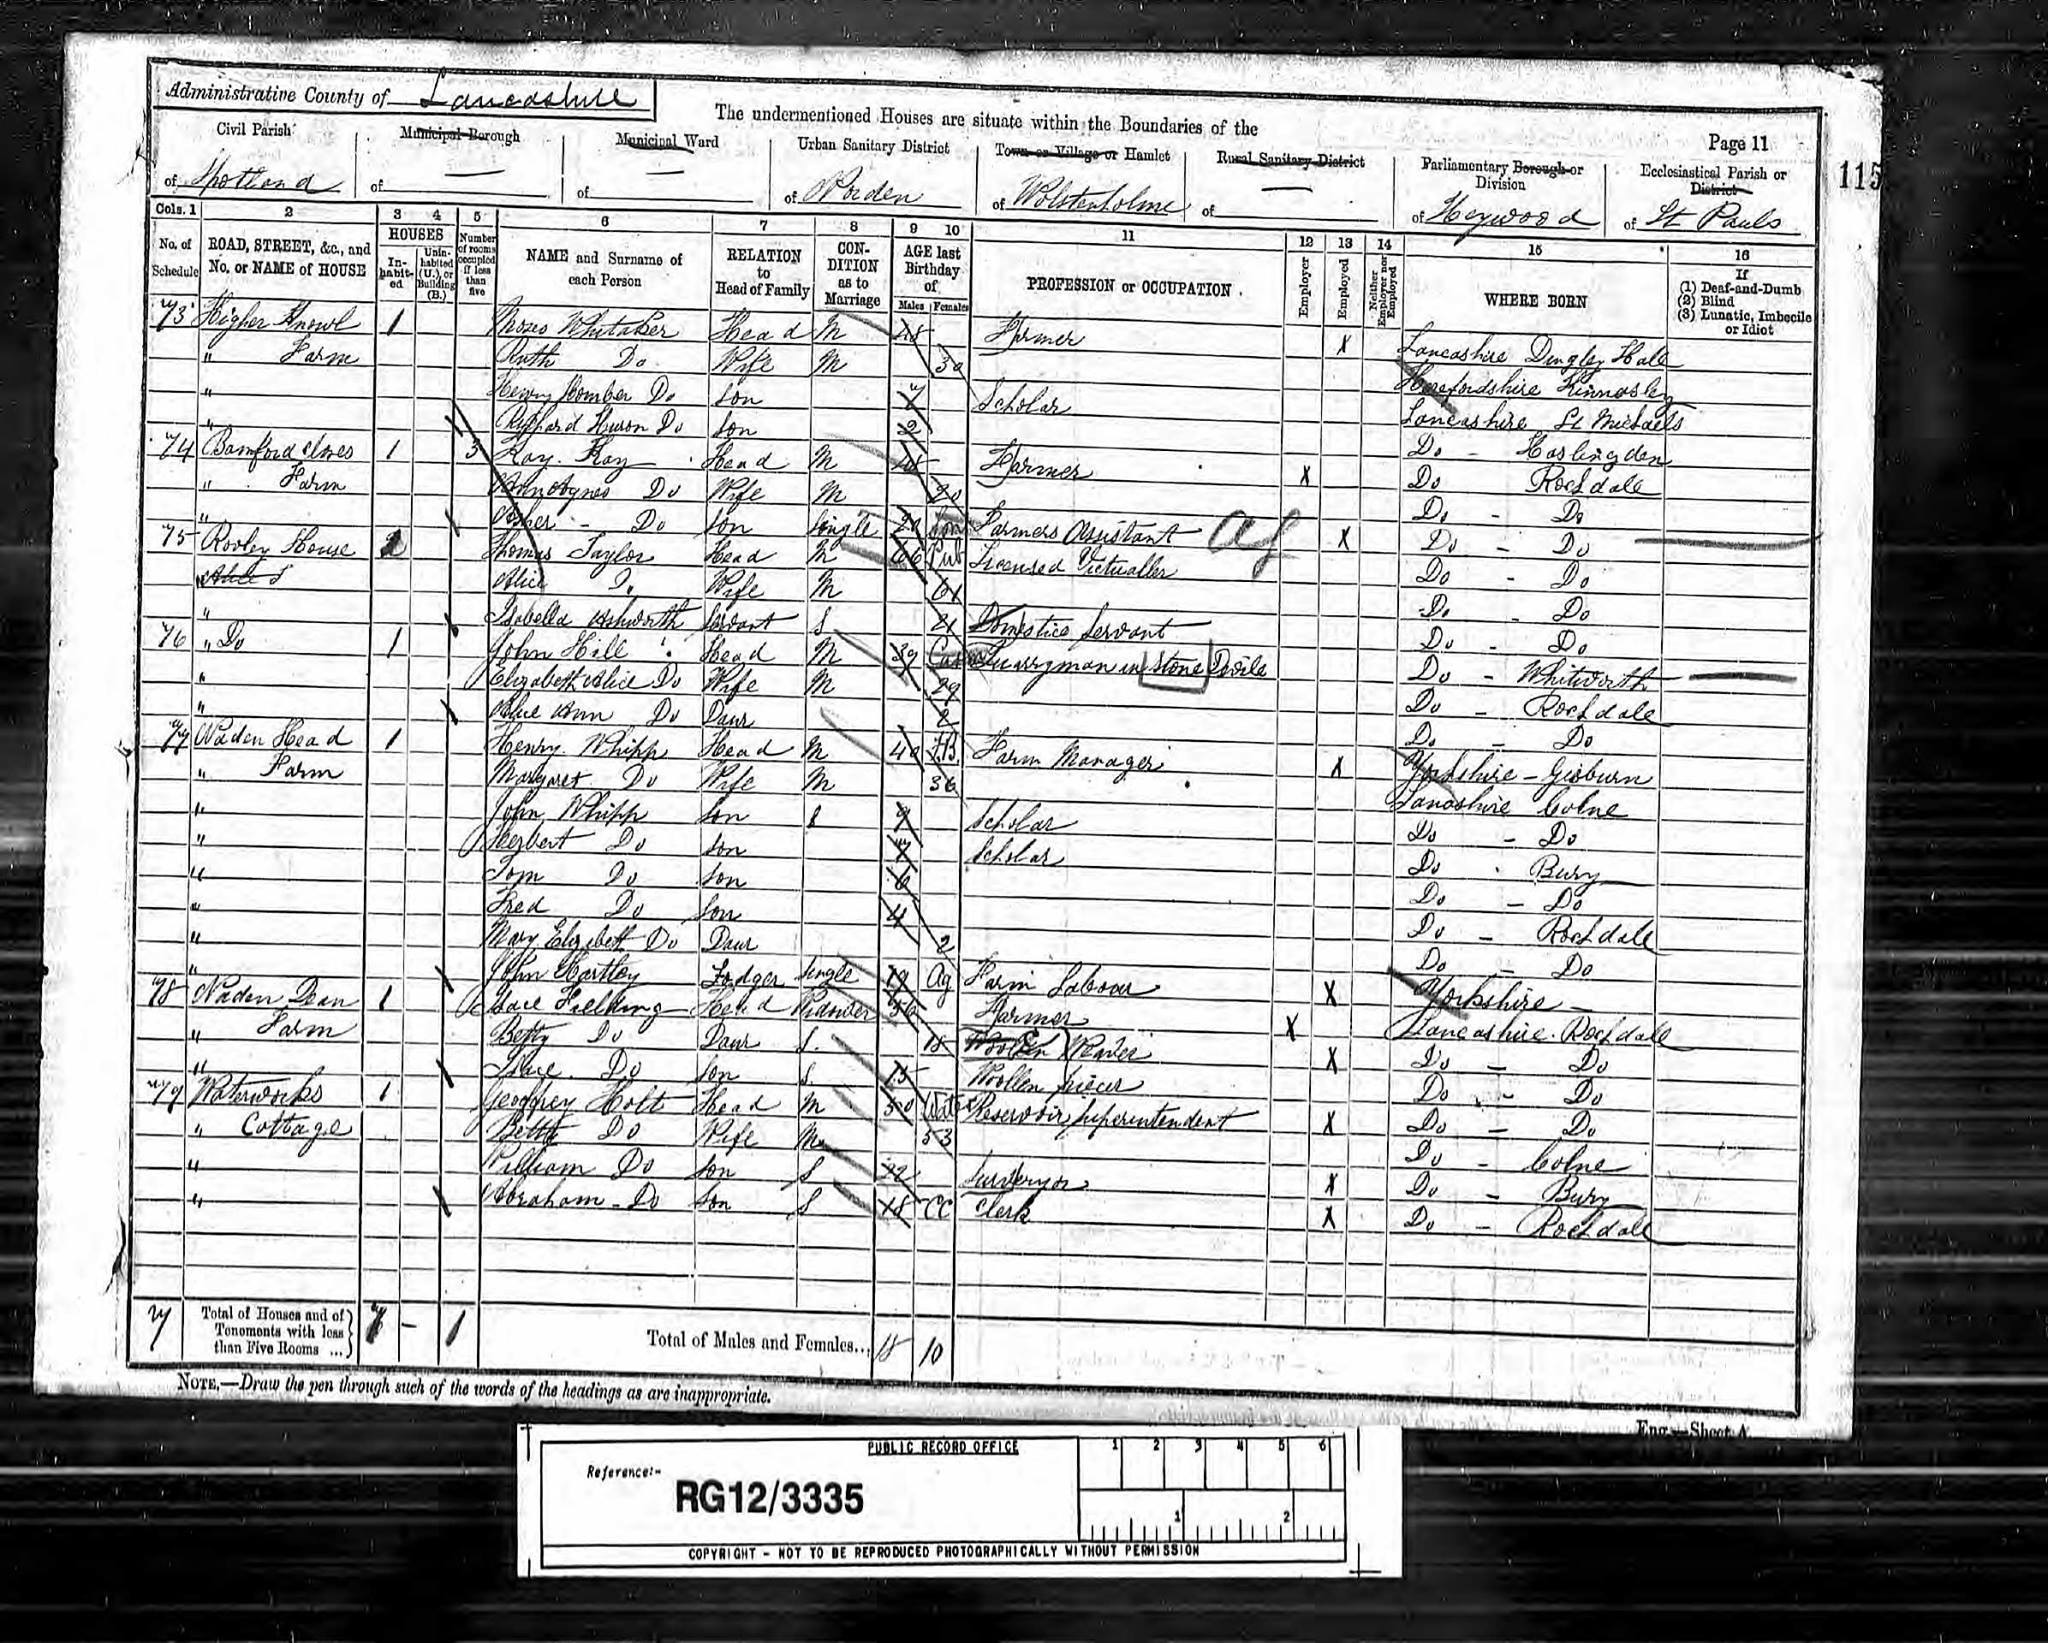 Administrative County of Lancashire
The undermentioned Houses are situate within the Boundaries of the
Page 11
115
Civil Parish
of Spotland
Municipal Borough
of —
Municipal Ward
of —
Urban Sanitary District
of Norden
Town or Village or Hamlet
of Wolstenholme
Rural Sanitary District
of —
Parliamentary Borough or Division
of Heywood
Ecclesiastical Parish or District
of St Pauls
Cols. 1 2 3 4 5 6 7 8 9 10 11 12 13 14 15 16
No. of Schedule
ROAD, STREET, &c., and No. or NAME of HOUSE
HOUSES
In-habit-ed
Unin-habited (U.), or Building (B.)
Number of rooms occupied if less than five
NAME and Surname of each Person
RELATION to Head of Family
CON-DITION as to Marriage
AGE last Birthday of
Males Females
PROFESSION or OCCUPATION
Employer
Employed
Neither Employer nor Employed
WHERE BORN
If
(1) Deaf-and-Dumb
(2) Blind
(3) Lunatic, Imbecile or Idiot
73 Higher Knowl 1 Moses Whitaker Head M Farmer X Lancashire Dingley Hall
" Farm Ruth Do Wife M 30 Herefordshire Kinnersley
" Henry Do Son 7 Scholar Lancashire St Michaels
" Richard Do Son 2 Do - Haslingden
74 Bamford 1 3 Kay Kay Head M Farmer X Do Rochdale
" Farm Do Wife M Do - Do
" Asher - Do Son Single 20 Farmers Assistant Ag X Do - Do
75 Rooley House Thomas Taylor Head M 66 Pub Licensed Victualler Do - Do
" Alice Do Wife M 61 Do - Do
" Isabella Ashworth Servant S 21 Domestic Servant Do - Do
76 " Do 1 John Hill Head M 39 Quarryman in Stone Do - Whitworth
" Elizabeth Alice Do Wife M 29 Do - Rochdale
" Ann Do Daur 2 Do - Do
77 Naden Head 1 Henry Whipp Head M 40 F.B. Farm Manager X Yorkshire - Gisburn
" Farm Margaret Do Wife M 36 Lancashire Colne
" John Whipp Son S 9 Scholar Do - Do
" Herbert Do Son 7 Scholar Do - Bury
" Tom Do Son 6 Do - Do
" Fred Do Son 4 Do - Rochdale
" Mary Elizabeth Do Daur 2 Do - Do
" John Hartley Lodger Single 19 Ag Farm Labour X Yorkshire -
78 Naden Dean 1 Fielding Head Widower 56 Farmer X Lancashire. Rochdale
" Farm Betty Do Daur S. 18 Woollen Weaver X Do - Do
" Do Son S. 15 Woollen piecer Do - Do
79 Waterworks 1 Geoffrey Holt Head M 50 Water Reservoir Superintendent X Do - Do
" Cottage Betty Do Wife M 53 Do - Colne
" William Do Son S 22 Surveyor X Do - Bury
" Abraham - Do Son S 18 CC Clerk X Do - Rochdale
7 Total of Houses and of Tenements with less than Five Rooms ... 7 - 1
Total of Males and Females... 18 10
NOTE.—Draw the pen through such of the words of the headings as are inappropriate.
Eng.—Sheet A.
PUBLIC RECORD OFFICE
1 2 3 4 5 6
Reference:-
RG12/3335
1 2
COPYRIGHT - NOT TO BE REPRODUCED PHOTOGRAPHICALLY WITHOUT PERMISSION